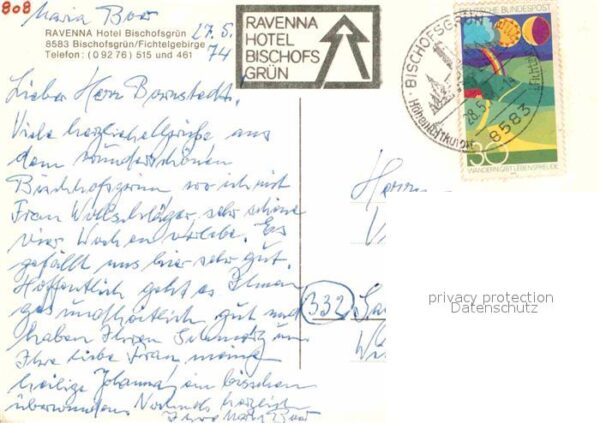 808
Maria Baar
27.5.
74
RAVENNA Hotel Bischofsgrün
8583 Bischofsgrün/Fichtelgebirge
Telefon: (0 92 76) 515 und 461
RAVENNA
HOTEL
BISCHOFS
GRÜN
BISCHOFSGRÜN
Höhenluftkurort
28.5.
8583
DEUTSCHE BUNDESPOST
30
WANDERN GIBT LEBENSFREUDE
Lieber Herr
Viele herzliche Grüße aus
dem wunderschönen
Bischofsgrün wo ich mit
Frau sehr schöne
vier Wochen verlebe. Es
gefällt uns hier sehr gut.
Hoffentlich geht es Ihnen
gesundheitlich gut und
haben Ihren
Ihre liebe Frau
heilige Johanna ein bisschen
überwunden. Nochmals herzlich
Ihre Maria Baar
Herrn
332
privacy protection
Datenschutz